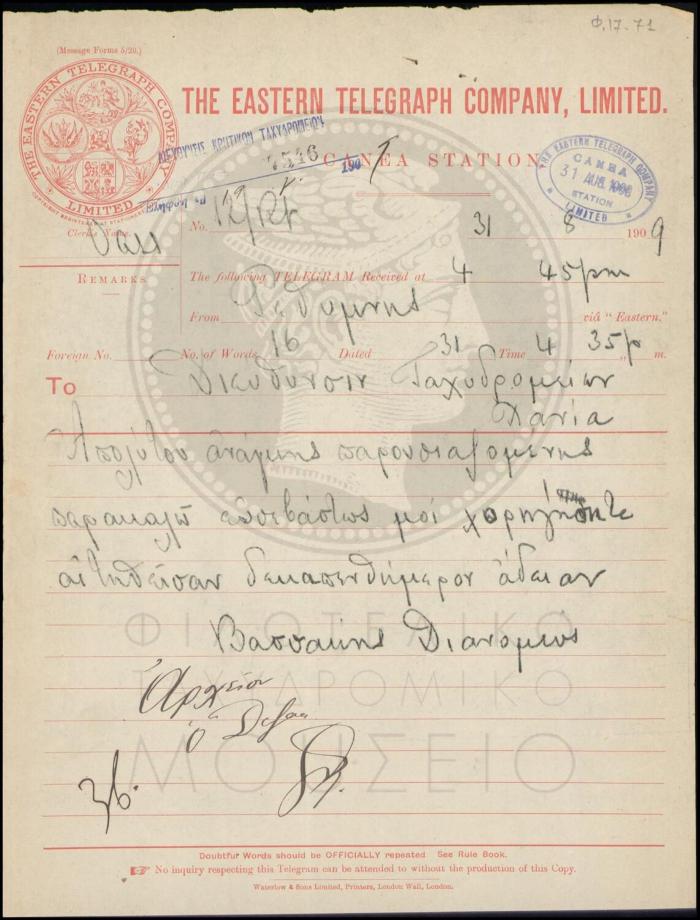 Φ.17.71
(Message Forms 5/20.)
THE EASTERN TELEGRAPH COMPANY
LIMITED
THE EASTERN TELEGRAPH COMPANY, LIMITED.
ΔΙΕΥΘΥΝΣΙΣ ΚΡΗΤΙΚΩΝ ΤΑΧΥΔΡΟΜΕΙΩΝ
7546 190
CANEA STATION
THE EASTERN TELEGRAPH COMPANY
CANEA
31 AUG
STATION
LIMITED
Clerk's Name.
No. 31 8 1909
REMARKS
The following TELEGRAM Received at 4 45 pm
From Ρεθύμνης viâ "Eastern."
Foreign No. No. of Words 16 Dated 31 Time 4 35 p m.
To Διεύθυνσιν Ταχυδρομείων
Χανία
Απολύτου ανάγκης παρουσιαζομένης
παρακαλώ ευσεβάστως μοί χορηγήσητε
αιτηθείσαν δεκαπενθήμερον άδειαν
Διανομεύς
Αρχείον
ΦΙΛΟΤΕΛΙΚΟ
ΤΑΧΥΔΡΟΜΙΚΟ
ΜΟΥΣΕΙΟ
Doubtful Words should be OFFICIALLY repeated See Rule Book.
No inquiry respecting this Telegram can be attended to without the production of this Copy.
Waterlow & Sons Limited, Printers, London Wall, London.